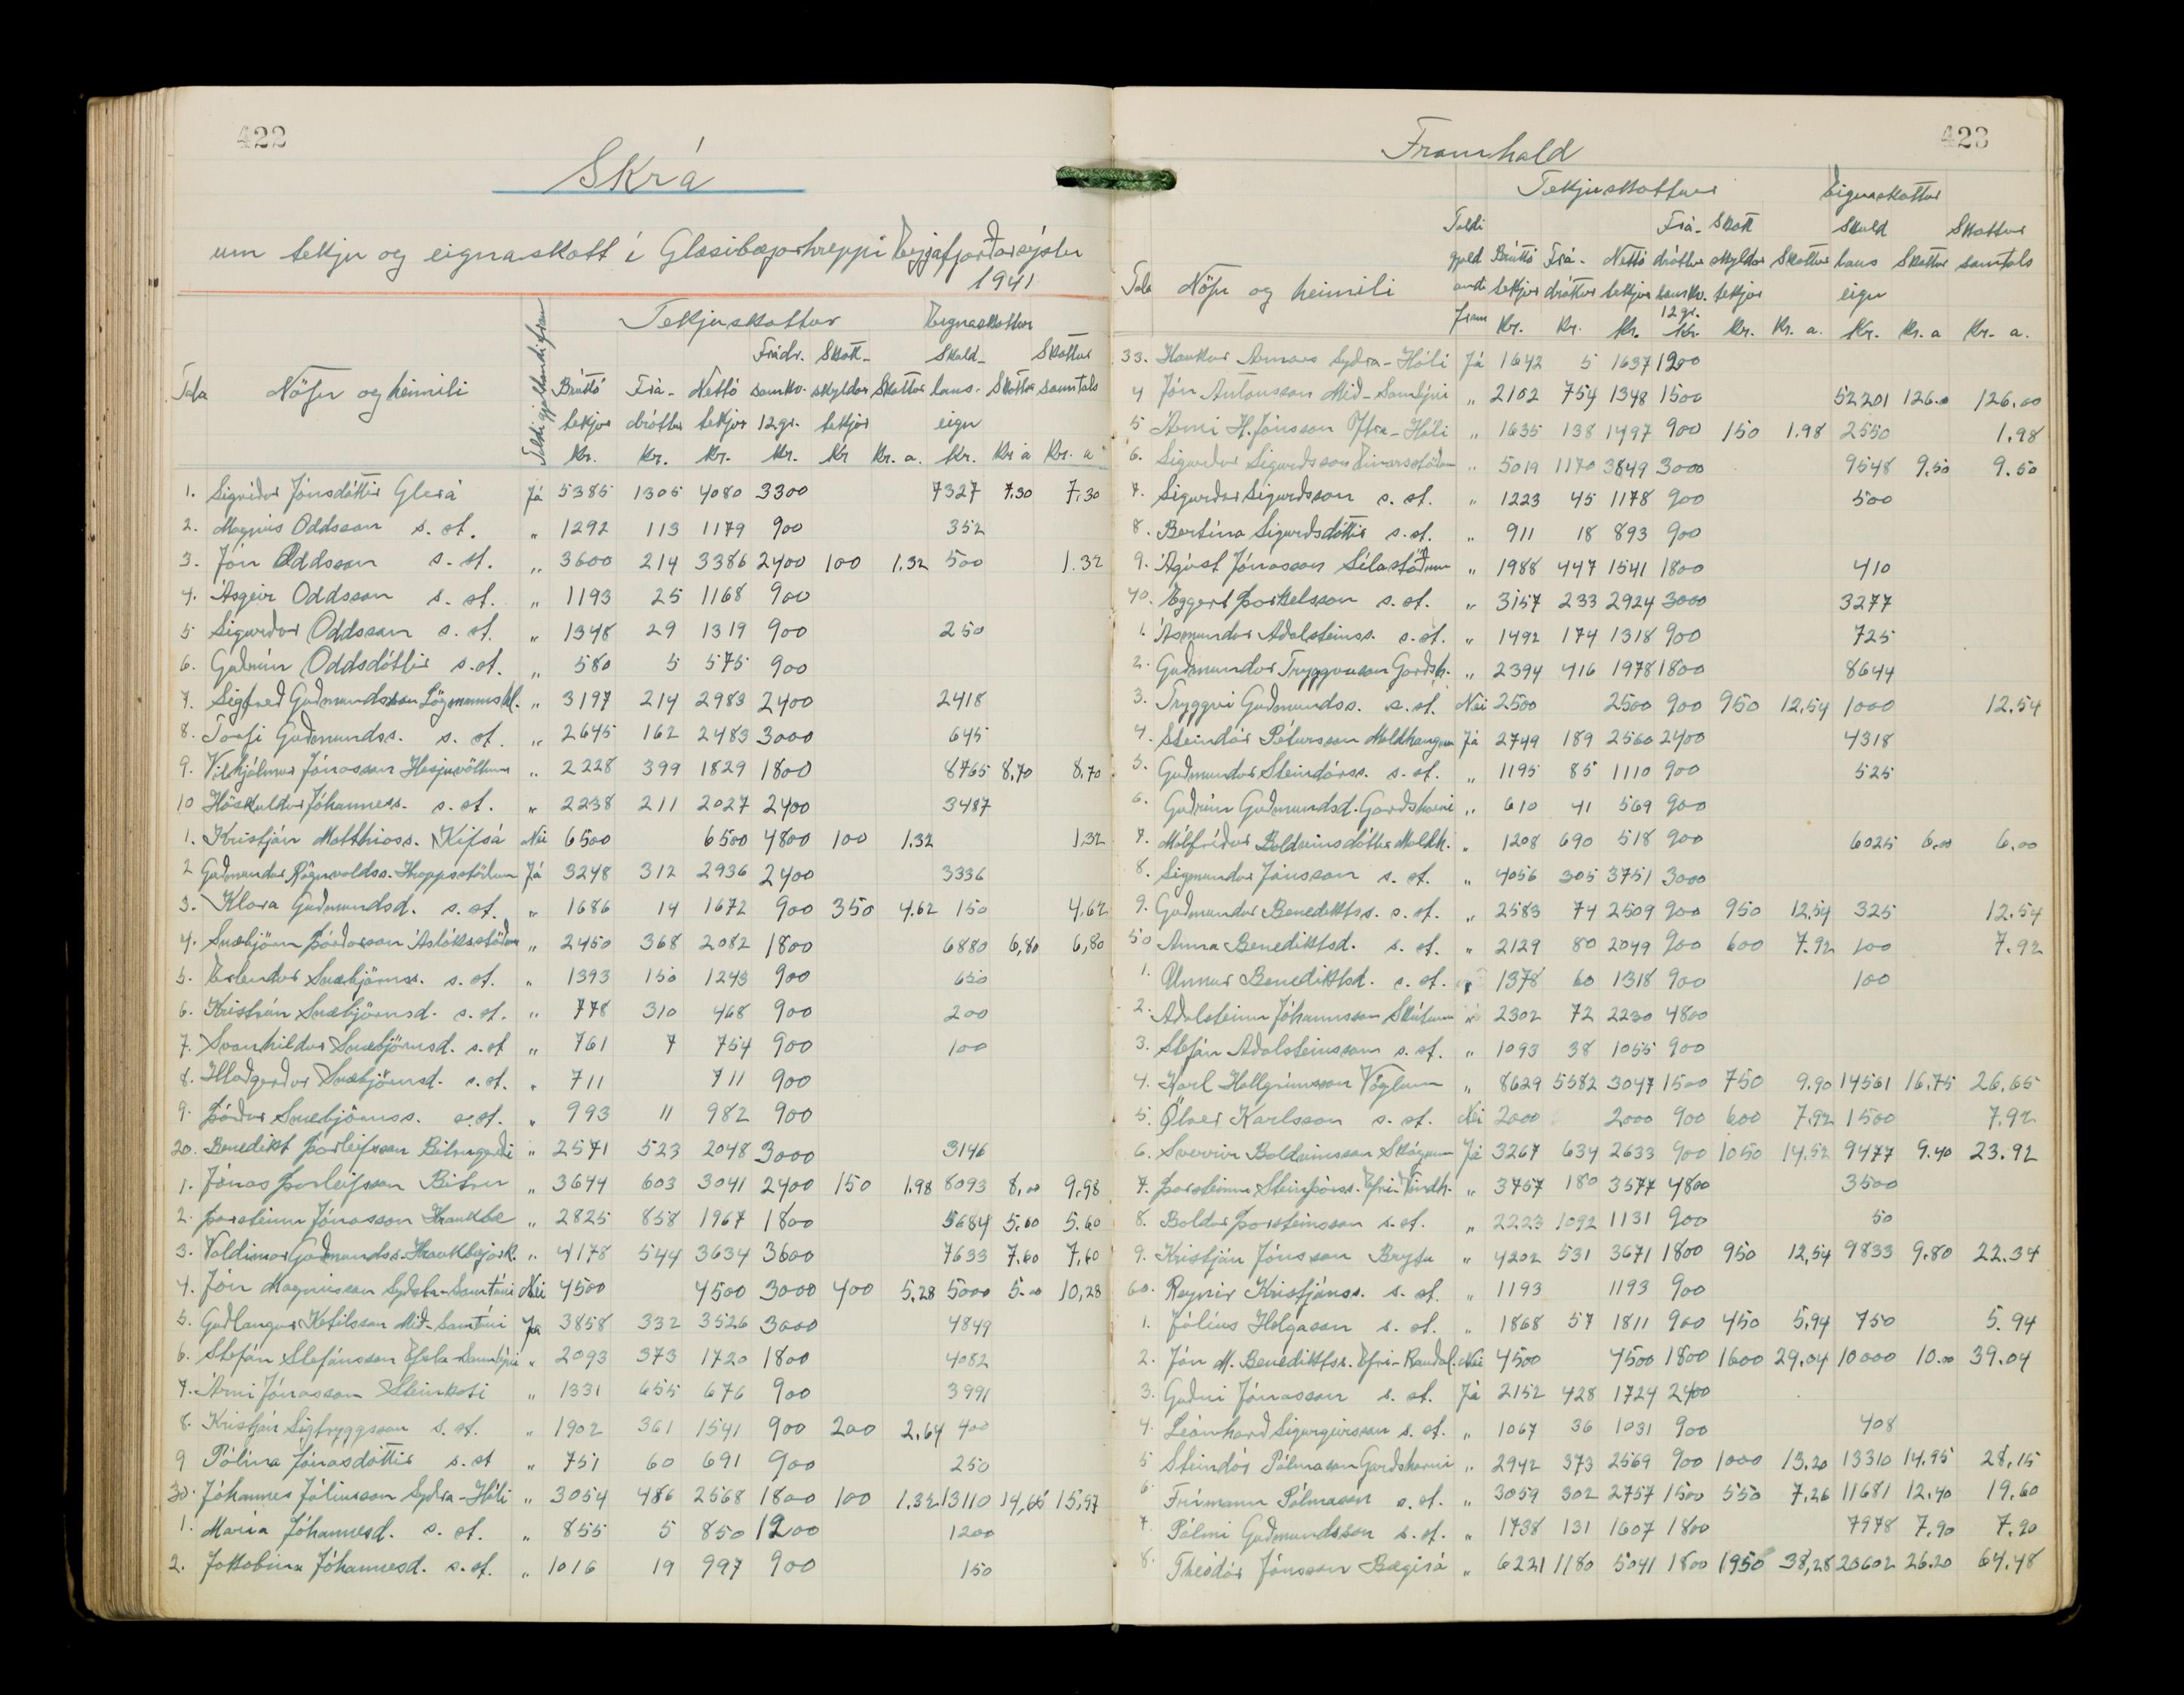 422
Skrá
um tekju og eignaskatt í Glæsibæjarhreppi Eyjafjarðarsýslu
1941
Tekjuskattur Eignaskattur
Frádr. Skatt- Skuld- Skattur
Tala Nöfn og heimili Taldi gjaldandi fram Brúttó Frá- Nettó samkv. skyldar Skattur laus- Skattur samtals
tekjur dráttur tekjur 12gr. tekjur eign
Kr. Kr. Kr. Kr. Kr Kr. a. Kr. Kr a Kr. a
1. Sigríður Jónsdóttir Glerá Já 5385 1305 4080 3300 7327 7.30 7.30
2. Magnús Oddsson s. st. " 1292 113 1179 900 352
3. Jón Oddsson s. st. " 3600 214 3386 2400 100 1.32 500 1.32
4. Ásgeir Oddsson s. st. " 1193 25 1168 900
5 Sigurður Oddsson s. st. " 1348 29 1319 900 250
6. Guðrún Oddsdóttir s.st. " 580 5 575 900
7. Sigfreð Guðmundsson Lögmannshl. " 3197 214 2983 2400 2418
8. Torfi Guðmundss. s. st. " 2645 162 2483 3000 645
9. Vilhjálmur Jónasson Hesjuvöllum " 2228 399 1829 1800 8765 8,70 8,70
10 Höskuldur Jóhanness. s. st. " 2238 211 2027 2400 3487
1. Kristján Matthíass. Kífsá Nei 6500 6500 4800 100 1.32 1.32
2 Guðmundur Rögnvaldss. Hrappsstöðum Já 3248 312 2936 2400 3336
3. Klara Guðmundsd. s. st. " 1686 14 1672 900 350 4.62 150 4.62
4. Snæbjörn Þórðarson Ásláksstöðum " 2450 368 2082 1800 6880 6,80 6,80
5. Erlendur Snæbjörnss. s. st. " 1393 150 1243 900 650
6. Kristrún Snæbjörnsd. s. st. " 778 310 468 900 200
7. Svanhildur Snæbjörnsd. s. st " 761 7 754 900 100
8. Hlaðgerður Snæbjörnsd. s. st. " 711 711 900
9. Þórður Snæbjörnss. s. st. " 993 11 982 900
20. Benedikt Þorleifsson Bitrugerði " 2571 523 2048 3000 3146
1. Jónas Þorleifsson Bitru " 3644 603 3041 2400 150 1.98 8093 8,00 9,98
2. Þorsteinn Jónasson Kraukbæ " 2825 858 1967 1800 5684 5.60 5.60
3. Valdimar Guðmundss. Kraukbæjark. " 4178 544 3634 3600 7633 7.60 7,60
4. Jón Magnússon Syðsta-Samtúni Nei 4500 4500 3000 400 5,28 5000 5.00 10,28
5. Guðlaugur Ketilsson Mið-Samtúni Já 3858 332 3526 3000 4849
6. Stefán Stefánsson Efsta-Samtýni " 2093 373 1720 1800 4082
7. Árni Jónasson Steinkoti " 1331 655 676 900 3991
8. Kristján Sigtryggsson s. st. " 1902 361 1541 900 200 2,64 400
9 Pólína Jónasdóttir s. st " 751 60 691 900 250
30. Jóhannes Júlíusson Syðra-Hóli " 3054 486 2568 1800 100 1.32 13110 14,65 15,97
1. María Jóhannesd. s. st. " 855 5 850 1200 1200
2. Jakobína Jóhannesd. s. st. " 1016 19 997 900 150
423
Framhald
Tekjuskattur Eignaskattur
Taldi Frá- Skatt Skuld Skattur
gjald Brúttó Frá- Nettó dráttur skyldar Skattur laus Skattur samtals
Tala Nöfn og heimili andi tekjur dráttur tekjur samkv. tekjur eign
fram 12 gr.
Kr. Kr. Kr. Kr. Kr. Kr. a. Kr. Kr. a Kr. a.
33. Haukur Syðra-Hóli Já 1642 5 1637 1200
4 Jón Antonsson Mið-Samtýni " 2102 754 1348 1500 52201 126.00 126.00
5 Árni H. Jónsson Ytra-Hóli " 1635 138 1497 900 150 1.98 2550 1.98
6. Sigurður Sigurðsson Einarsstöðum " 5019 1170 3849 3000 9548 9.50 9.50
7. Sigurður Sigurðsson s. st. " 1223 45 1178 900 500
8. Bertína Sigurðsdóttir s. st. " 911 18 893 900
9. Ágúst Jónasson Sílastöðum " 1988 447 1541 1800 410
40. Eggert Þorkelsson s. st. " 3157 233 2924 3000 3277
1. Ásmundur Aðalsteinss. s. st. " 1492 174 1318 900 725
2. Guðmundur Tryggvason Garðsh. " 2394 416 1978 1800 8644
3. Tryggvi Guðmundss. s. st. Nei 2500 2500 900 950 12,54 1000 12.54
4. Steindór Pétursson Moldhaugum Já 2749 189 2560 2400 4318
5. Guðmundur Steindórss. s. st. " 1195 85 1110 900 525
6. Guðrún Guðmundsd. Garðshorni " 610 41 569 900
7. Málfríður Baldvinsdóttir Moldh. " 1208 690 518 900 6025 6,00 6.00
8. Sigmundur Jónsson s. st. " 4056 305 3751 3000
9. Guðmundur Benediktss. s. st. " 2583 74 2509 900 950 12,54 325 12.54
50 Anna Benediktsd. s. st. " 2129 80 2049 900 600 7.92 100 7.92
1. Unnur Benediktsd. s. st. " 1378 60 1318 900 100
2. Aðalsteinn Jóhannsson Skútum " 2302 72 2230 4800
3. Stefán Aðalsteinsson s. st. " 1093 38 1055 900
4. Karl Hallgrímsson Vöglum " 8629 5582 3047 1500 750 9.90 14561 16.75 26,65
5. Ölver Karlsson s. st. Nei 2000 2000 900 600 7.92 1500 7.92
6. Sverrir Baldvinsson Skógum Já 3267 634 2633 900 1050 14.52 9477 9.40 23.92
7. Þorsteinn Steinþórss. Efri-Vindh. " 3757 180 3577 4800 3500
8. Baldur Þorsteinsson s. st. " 2223 1092 1131 900 50
9. Kristján Jónsson Brytu " 4202 531 3671 1800 950 12,54 9833 9.80 22.34
60. Reynir Kristjánss. s. st. " 1193 1193 900
1. Júlíus Helgason s. st. " 1868 57 1811 900 450 5,94 750 5.94
2. Jón M. Benediktss. Efri-Rauðal. Nei 4500 4500 1800 1600 29,04 10000 10.00 39.04
3. Guðni Jónasson s. st. Já 2152 428 1724 2400
4. Léonharð Sigurgeirsson s. st. " 1067 36 1031 900 408
5 Steindór Pálmason Garðshorni " 2942 373 2569 900 1000 13.20 13310 14.95 28,15
6. Frímann Pálmason s. st. " 3059 302 2757 1500 550 7,26 11681 12.40 19.60
7. Pálmi Guðmundsson s. st. " 1738 131 1607 1800 7978 7.90 7.90
8. Theódór Jónsson Bægisá " 6221 1180 5041 1800 1950 38,28 20602 26.20 64.48